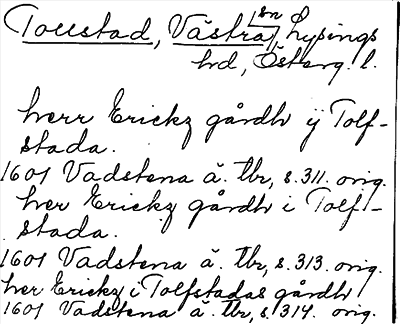 Tollstad, Västra sn, Lysings
hd, Österg. l.
herr Erickz gårdh ij Tolf-
stada.
1601 Vadstena ä. tbr, s. 311. orig.
her Erickz gårdh i Tolf-
stada.
1601 Vadstena ä. tbr, s. 313. orig.
her Erickz i Tolfstadas gårdh
1601 Vadstena ä. tbr, s. 314. orig.